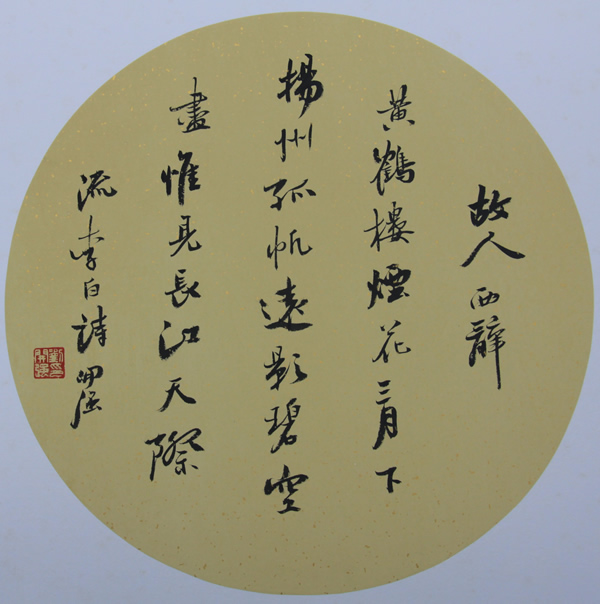 故人西辭
黄鶴樓煙花三月下
揚州孤帆遠影碧空
盡惟見長江天際
流李白詩開强
劉印開强